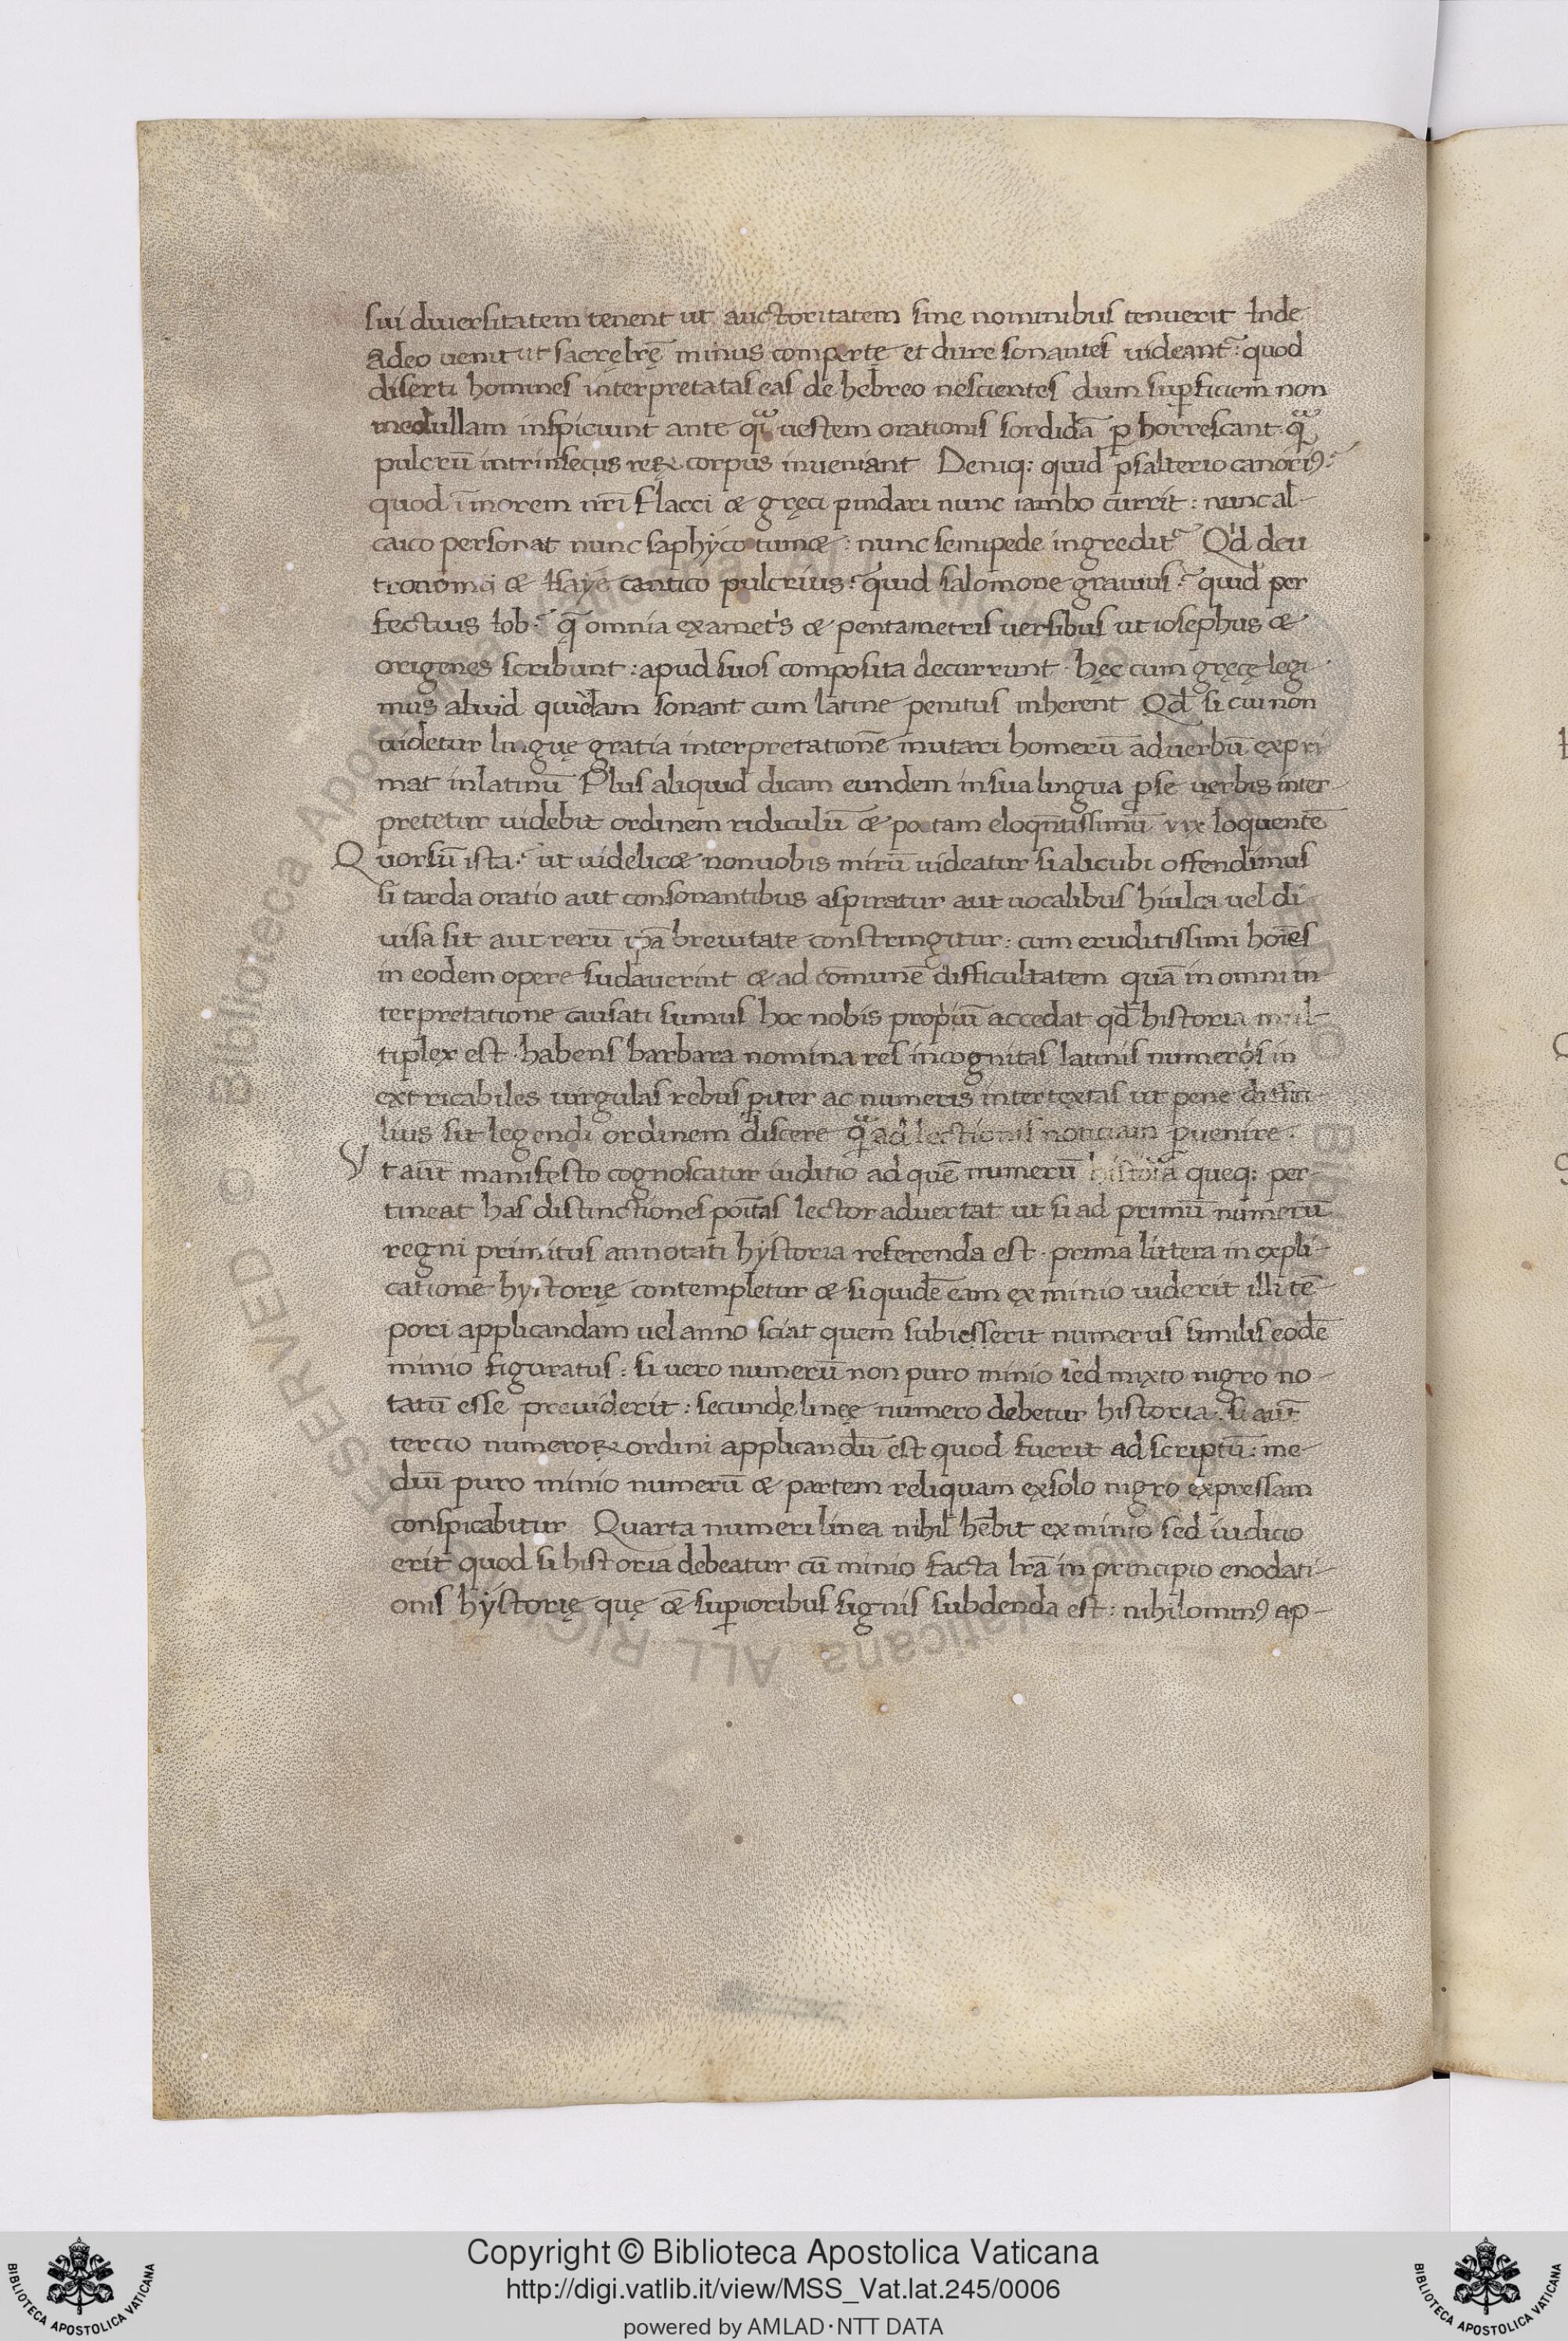 sui diuersitatem tenent ut auctoritatem sine nominibus tenuerit Inde
adeo uenit ut sacrę lrę̄ minus comperte et dure sonantes uideant᷑: quod
diserti homines interpretatas eas de hebreo nescientes dum suꝑficiem non
medullam inspiciunt ante qua uestem orationis sordidā ꝑ horrescant qua
pulcrū intrinsecus reꝝ corpus inueniant Deniq: quid psalterio canoriꝰ:
quod ī morem nr̄i flacci & gręci pindari nunc iambo currit: nunc al-
caico personat nunc saphyco tum&: nunc semipede ingredit᷑ Qd deu
tronomii & Isaye cantico pulcrius: quid salomone grauius: quid per
fectius Iob: q̄ omnia exametris & pentametris uersibus ut iosephus &
origenes scribunt: apud suos composita decurrunt. hęc cum gręcę legi
mus aliuid quiddam sonant cum latine penitus inherent Qd si cui non
uidetur linguę gratia interpretationē mutari homerū ad uerbū expri
mat in latinū Plus aliquid dicam eundem in sua lingua ꝓse uerbis inter-
pretetur uidebit ordinem ridiculū & poetam eloqn̄tissimū vix loquentē
Quorsū ista: ut uidelic& non uobis mirū uideatur si alicubi offendimus
si tarda oratio aut consonantibus aspiratur aut uocalibus hiulca uel di
uisa sit aut rerū ipā breuitate constringitur: cum eruditissimi hoīes
in eodem opere sudauerint & ad cōmunē difficultatem quā in omni in-
terpretatione causati sumus hoc nobis propriū accedat qd historia mul-
tiplex est habens barbara nomina res incognitas latinis numeros in
extricabiles uirgulas rebus ꝑiter ac numeris intertextas ut pene diffici-
lius sit legendi ordinem discere qua ad lectionis noticiam ꝑuenire.
Vt aut̄ manifesto cognoscatur iuditio ad quē numerū historia queq: per-
tineat has distinctiones poītas lector aduertat ut si ad primū numerū
regni primitus annotati hystoria referenda est. prima littera in expli-
catione hystorię contempletur & si quidē eam ex minio uiderit illi tē-
pori applicandam uel anno sciat quem subiesserit numerus similis eodē
minio figuratus: si uero numerū non puro minio sed mixto nigro no-
tatū esse preuiderit: secundę linęę numero debetur historia. Si aut̄
tercio numeroꝝ ordini applicandū est quod fuerit adscriptū: me-
diū puro minio numerū & partem reliquam ex solo nigro expressam
conspicabitur Quarta numeri linea nihil hēbit ex minio sed iudicio
erit quod si historia debeatur cū minio facta lrā in principio enodati-
onis hystorię quę &̄ suꝑioribus signis subdenda est: nihilominꝰ ap-
Copyright © Biblioteca Apostolica Vaticana
http://digi.vatlib.it/view/MSS_Vat.lat.245/0006
powered by AMLAD·NTT DATA
BIBLIOTECA APOSTOLICA VATICANA
BIBLIOTECA APOSTOLICA VATICANA